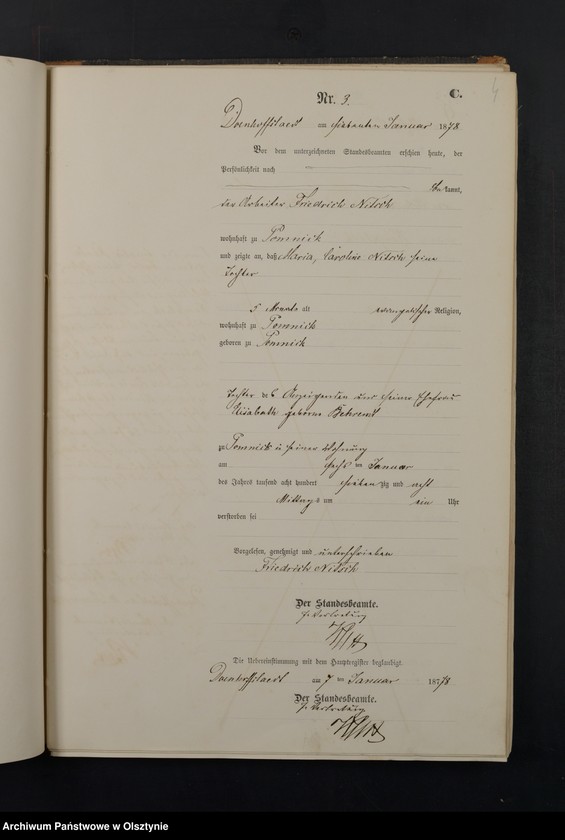 4
Nr. 3.
C.
Doenhoffstaedt am siebenten Januar 1878
Vor dem unterzeichneten Standesbeamten erschien heute, der
Persönlichkeit nach
bekannt,
der Arbeiter Friedrich Nitsch
wohnhaft zu Pomnick
und zeigte an, daß Maria, Caroline Nitsch seine
Tochter
5 Monate alt evangelischer Religion,
wohnhaft zu Pomnick
geboren zu Pomnick
Tochter des Anzeigenden und seiner Ehefrau
Elisabeth geborne Behrend
zu Pomnick in seiner Wohnung
am sechs ten Januar
des Jahres tausend acht hundert sieben zig und acht
Mittags um ein Uhr
verstorben sei
Vorgelesen, genehmigt und unterschrieben
Friedrich Nitsch
Der Standesbeamte.
Die Uebereinstimmung mit dem Hauptregister beglaubigt.
Doenhoffstaedt am 7 ten Januar 1878
Der Standesbeamte.
Archiwum Państwowe w Olsztynie